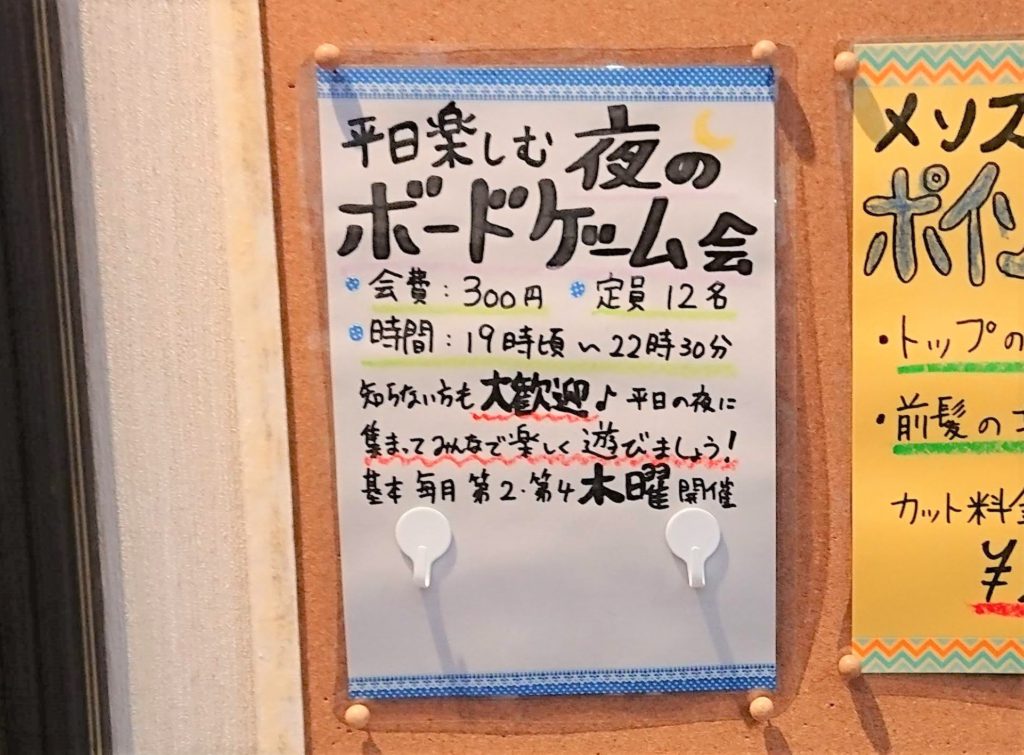 平日楽しむ夜の
ボードゲーム会
会費：300円 定員12名
時間：19時頃～22時30分
知らない方も大歓迎♪平日の夜に
集まってみんなで楽しく遊びましょう！
基本毎月第2・第4木曜開催
メンズ
ポイン
・トップの
・前髪の
カット料金
¥